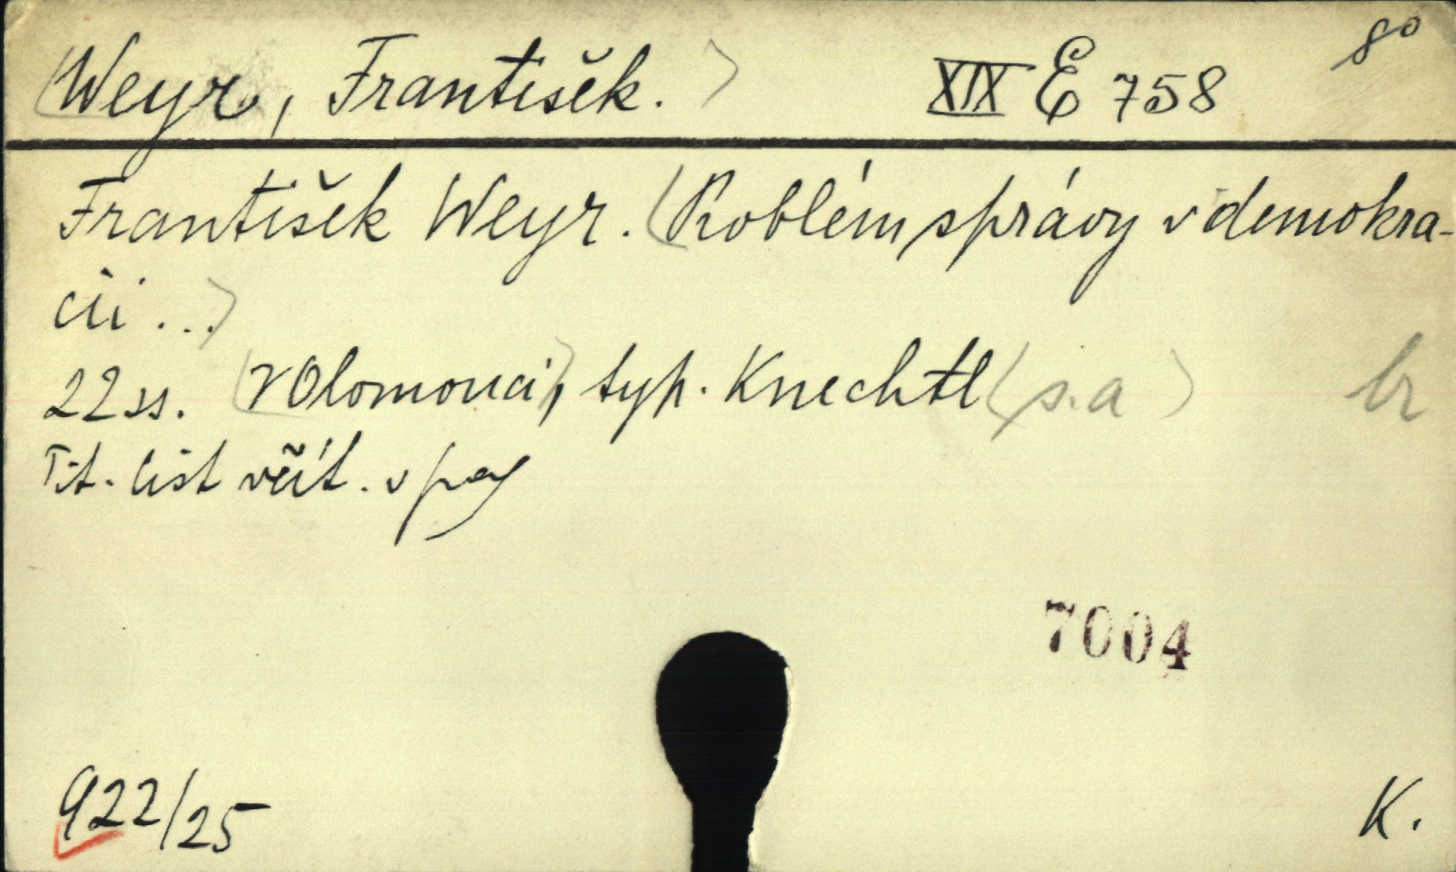 8°
(Weyr, František.) XIX E 758
František Weyr. (Problém správy v demokra-
cii...)
22 ss. (V Olomouci), typ. Knechtl (s.a) br
Tit. list včít. v pag
7004
922/25 K.